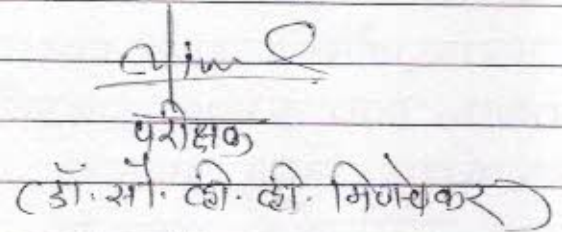 परीक्षक
(डॉ. सौ. व्ही. व्ही. मिणचेकर)